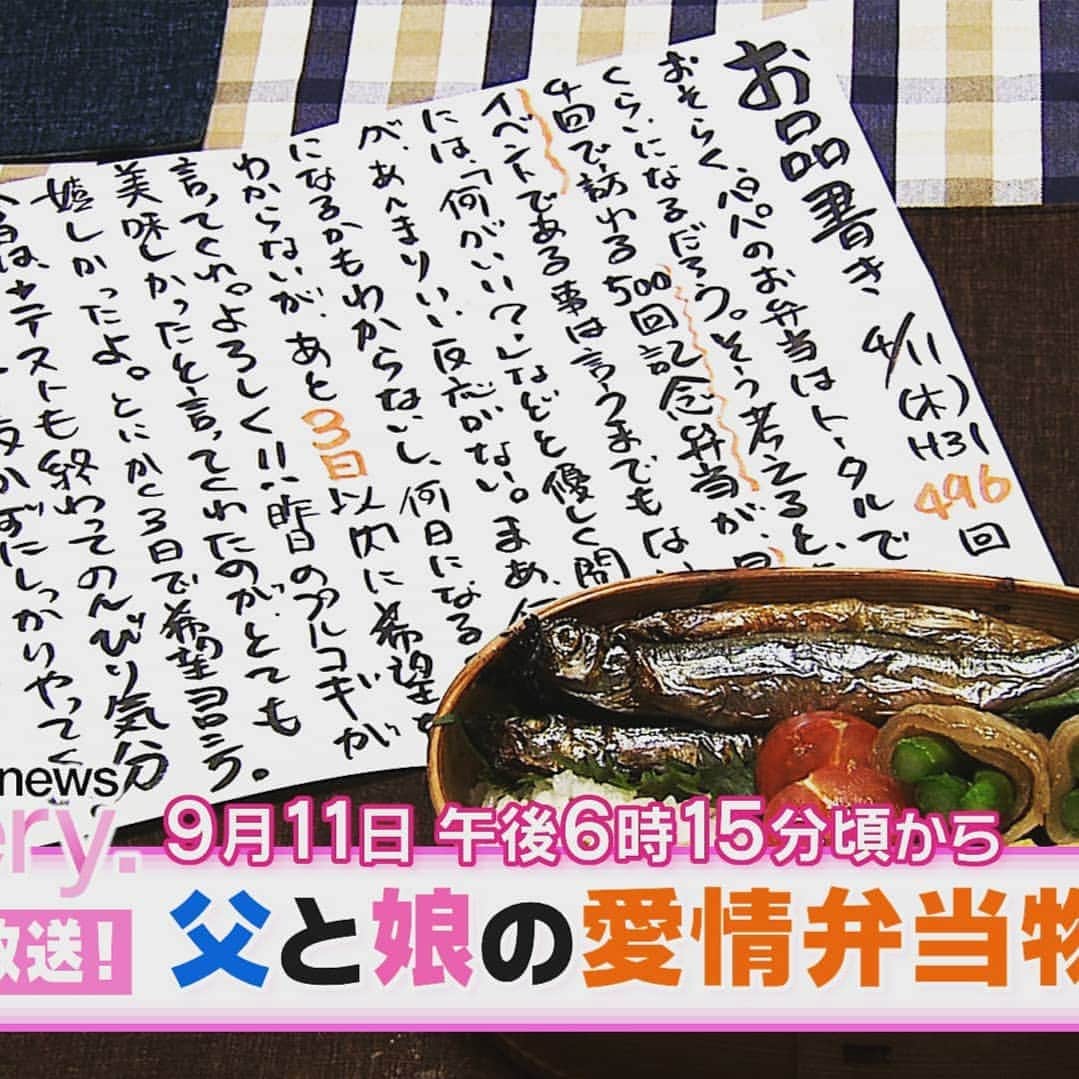 お品書き 4/11(木) H31 496回
おそらく、パパのお弁当はトータルで
くらいになるだろう。そう考えると、
4回で訪れる500回記念弁当が、
イベントである事は言うまでもない
には、「何がいい?」などと優しく問
が、あんまりいい反応がない。まあ、
になるかもわからないし、何日になる
わからないが、あと3日以内に希望を
言ってくれ。よろしく!!昨日のプルコギが
美味しかったと言ってくれたのが、とても
嬉しかったよ。とにかく3日で希望ヨロシク。
は、テストも終わってのんびり気分
かずにしっかりやってく
news
ery.
9月11日 午後6時15分頃から
放送!
父と娘の愛情弁当物